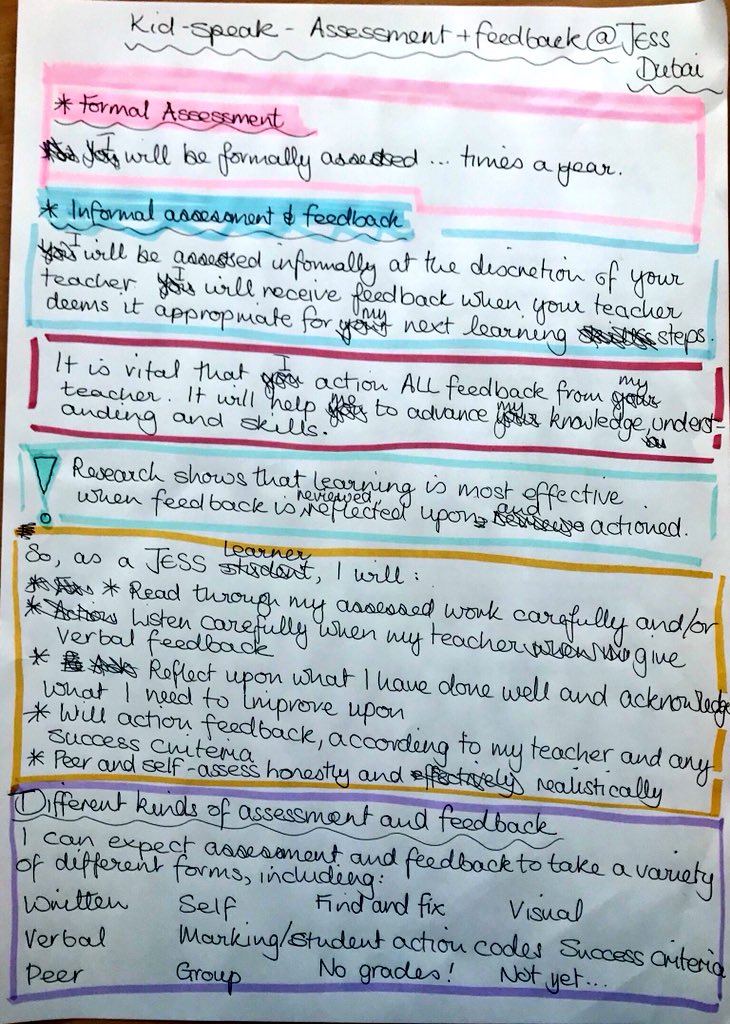 Kid-speak - Assessment + feedback @ JESS
Dubai
* Formal Assessment
I will be formally assessed ... times a year.
* Informal assessment & feedback
I will be assessed informally at the discretion of your
teacher I will receive feedback when your teacher
deems it appropriate for my next learning steps.
It is vital that I action ALL feedback from my
teacher. It will help me to advance my knowledge, underst-
anding and skills.
! Research shows that learning is most effective
when feedback is reviewed, reflected upon and actioned.
So, as a JESS learner, I will:
* Read through my assessed work carefully and/or
* Listen carefully when my teacher give
verbal feedback
* Reflect upon what I have done well and acknowledge
what I need to improve upon
* Will action feedback, according to my teacher and any
success criteria
* Peer and self-assess honestly and realistically
Different kinds of assessment and feedback
I can expect assessment and feedback to take a variety
of different forms, including:
Written Self Find and fix Visual
Verbal Marking/student action codes Success criteria
Peer Group No grades! Not yet...